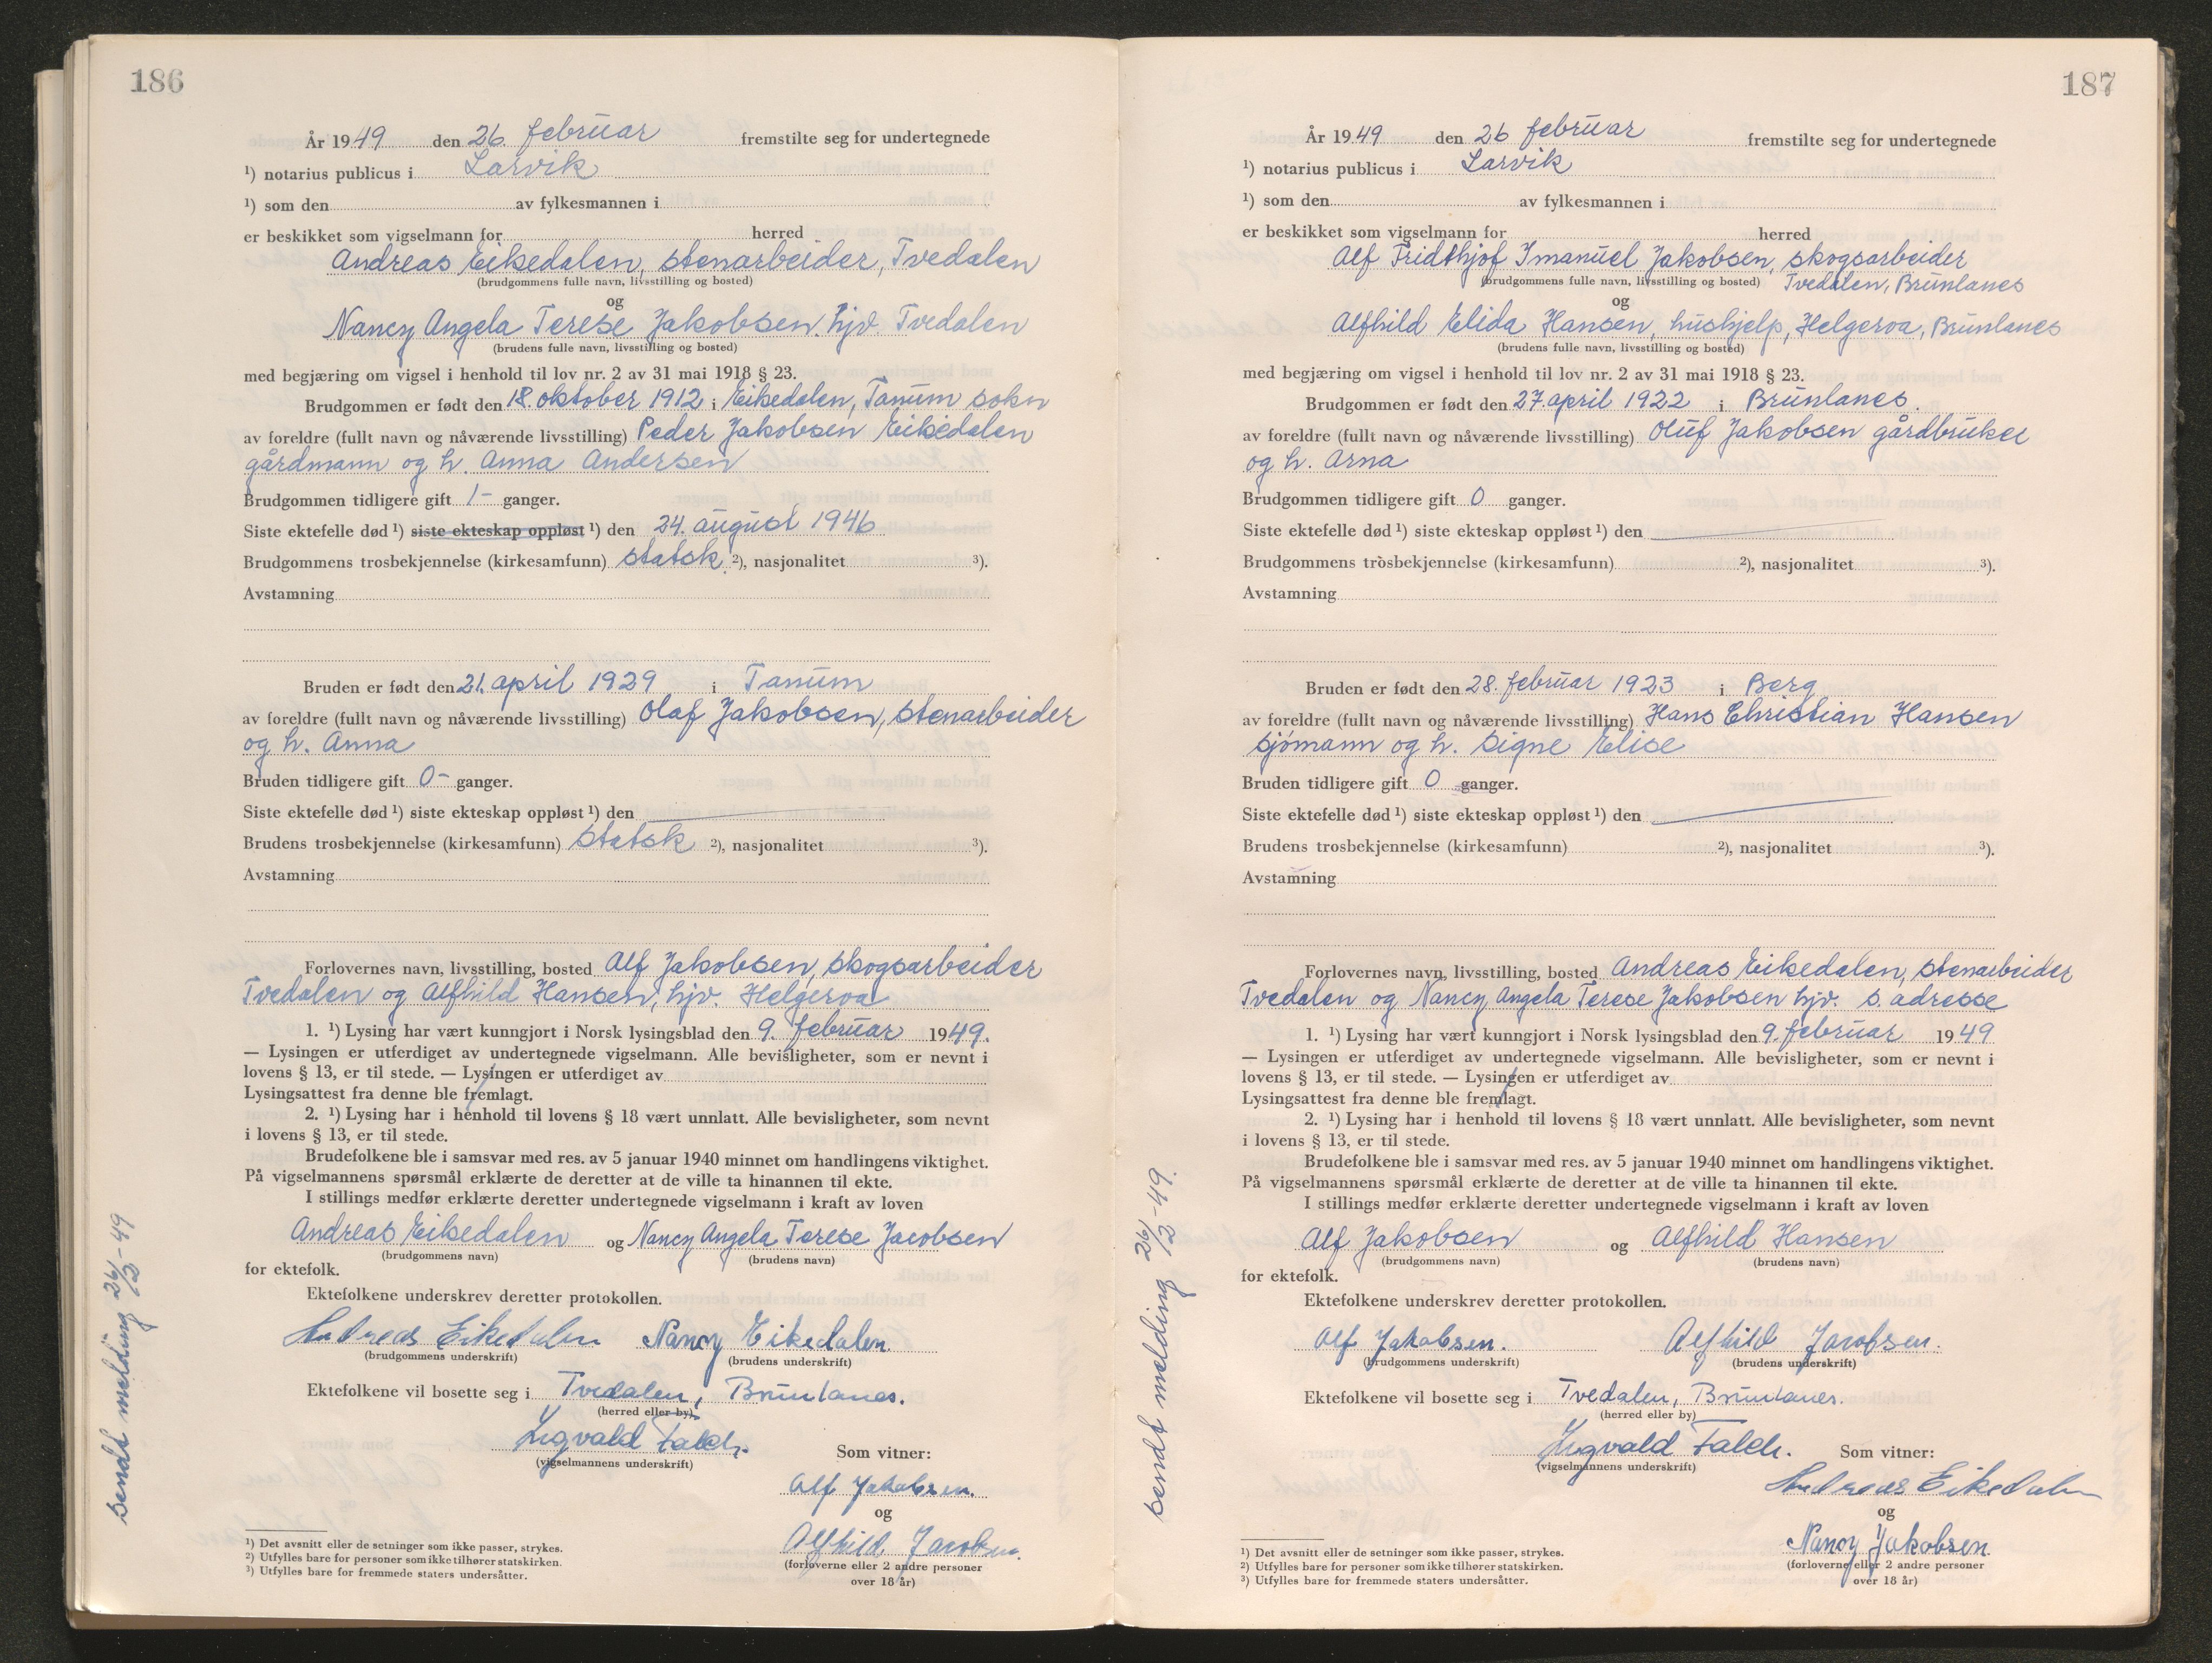 186
År 1949 den 26. februar fremstilte seg for undertegnede
¹) notarius publicus i Larvik
¹) som den av fylkesmannen i
er beskikket som vigselmann for herred
Andreas Eikedalen, stenarbeider, Tvedalen
(brudgommens fulle navn, livsstilling og bosted)
og
Nancy Angela Terese Jakobsen. hjv. Tvedalen
(brudens fulle navn, livsstilling og bosted)
med begjæring om vigsel i henhold til lov nr. 2 av 31 mai 1918 § 23.
Brudgommen er født den 18. oktober 1912 i Eikedalen, Tanum sokn
av foreldre (fullt navn og nåværende livsstilling) Peder Jakobsen Eikedalen
gårdmann og h. Anna Andersen
Brudgommen tidligere gift 1- ganger.
Siste ektefelle død ¹) siste ekteskap oppløst ¹) den 24. august 1946
Brudgommens trosbekjennelse (kirkesamfunn) statsk. ²), nasjonalitet ³).
Avstamning
Bruden er født den 21. april 1929 i Tanum
av foreldre (fullt navn og nåværende livsstilling) Olaf Jakobsen, stenarbeider
og h. Anna
Bruden tidligere gift 0- ganger.
Siste ektefelle død ¹) siste ekteskap oppløst ¹) den
Brudens trosbekjennelse (kirkesamfunn) statsk ²), nasjonalitet ³).
Avstamning
Forlovernes navn, livsstilling, bosted Alf Jakobsen, skogsarbeider
Tvedalen og Alfhild Hansen, hjv. Helgeroa
1. ¹) Lysing har vært kunngjort i Norsk lysingsblad den 9. februar 1949.
— Lysingen er utferdiget av undertegnede vigselmann. Alle bevisligheter, som er nevnt i
lovens § 13, er til stede. — Lysingen er utferdiget av
Lysingsattest fra denne ble fremlagt.
2. ¹) Lysing har i henhold til lovens § 18 vært unnlatt. Alle bevisligheter, som nevnt
i lovens § 13, er til stede.
Brudefolkene ble i samsvar med res. av 5 januar 1940 minnet om handlingens viktighet.
På vigselmannens spørsmål erklærte de deretter at de ville ta hinannen til ekte.
I stillings medfør erklærte deretter undertegnede vigselmann i kraft av loven
Andreas Eikedalen og Nancy Angela Terese Jacobsen
(brudgommens navn) (brudens navn)
for ektefolk.
Ektefolkene underskrev deretter protokollen.
Andreas Eikedalen Nancy Eikedalen.
(brudgommens underskrift) (brudens underskrift)
Ektefolkene vil bosette seg i Tvedalen, Brunlanes.
(herred eller by)
Sigvald Falch.
(vigselmannens underskrift)
Som vitner:
Alf Jakobsen.
og
Alfhild Jacobsen.
(forloverne eller 2 andre personer
over 18 år)
¹) Det avsnitt eller de setninger som ikke passer, strykes.
²) Utfylles bare for personer som ikke tilhører statskirken.
³) Utfylles bare for fremmede staters undersåtter.
sendt melding 26/2-49
187
År 1949 den 26 februar fremstilte seg for undertegnede
¹) notarius publicus i Larvik
¹) som den av fylkesmannen i
er beskikket som vigselmann for herred
Alf Fridthjof Imanuel Jakobsen, skogsarbeider
(brudgommens fulle navn, livsstilling og bosted) Tvedalen, Brunlanes
og
Alfhild Elida Hansen, hushjelp, Helgeroa, Brunlanes
(brudens fulle navn, livsstilling og bosted)
med begjæring om vigsel i henhold til lov nr. 2 av 31 mai 1918 § 23.
Brudgommen er født den 27. april 1922 i Brunlanes.
av foreldre (fullt navn og nåværende livsstilling) Oluf Jakobsen gårdbruker
og h. Arna
Brudgommen tidligere gift 0 ganger.
Siste ektefelle død ¹) siste ekteskap oppløst ¹) den
Brudgommens trosbekjennelse (kirkesamfunn) ²), nasjonalitet ³).
Avstamning
Bruden er født den 28. februar 1923 i Berg
av foreldre (fullt navn og nåværende livsstilling) Hans Christian Hansen
sjømann og h. Signe Elise
Bruden tidligere gift 0 ganger.
Siste ektefelle død ¹) siste ekteskap oppløst ¹) den
Brudens trosbekjennelse (kirkesamfunn) ²), nasjonalitet ³).
Avstamning
Forlovernes navn, livsstilling, bosted Andreas Eikedalen, stenarbeider
Tvedalen og Nancy Angela Terese Jakobsen hjv. s. adresse
1. ¹) Lysing har vært kunngjort i Norsk lysingsblad den 9. februar 1949
— Lysingen er utferdiget av undertegnede vigselmann. Alle bevisligheter, som er nevnt i
lovens § 13, er til stede. — Lysingen er utferdiget av
Lysingsattest fra denne ble fremlagt.
2. ¹) Lysing har i henhold til lovens § 18 vært unnlatt. Alle bevisligheter, som nevnt
i lovens § 13, er til stede.
Brudefolkene ble i samsvar med res. av 5 januar 1940 minnet om handlingens viktighet.
På vigselmannens spørsmål erklærte de deretter at de ville ta hinannen til ekte.
I stillings medfør erklærte deretter undertegnede vigselmann i kraft av loven
Alf Jakobsen og Alfhild Hansen
(brudgommens navn) (brudens navn)
for ektefolk.
Ektefolkene underskrev deretter protokollen.
Alf Jakobsen. Alfhild Jacobsen.
(brudgommens underskrift) (brudens underskrift)
Ektefolkene vil bosette seg i Tvedalen, Brunlanes.
(herred eller by)
Sigvald Falch.
(vigselmannens underskrift)
Som vitner:
Andreas Eikedalen
og
Nancy Jakobsen
(forloverne eller 2 andre personer
over 18 år)
¹) Det avsnitt eller de setninger som ikke passer, strykes.
²) Utfylles bare for personer som ikke tilhører statskirken.
³) Utfylles bare for fremmede staters undersåtter.
sendt melding 26/2-49.